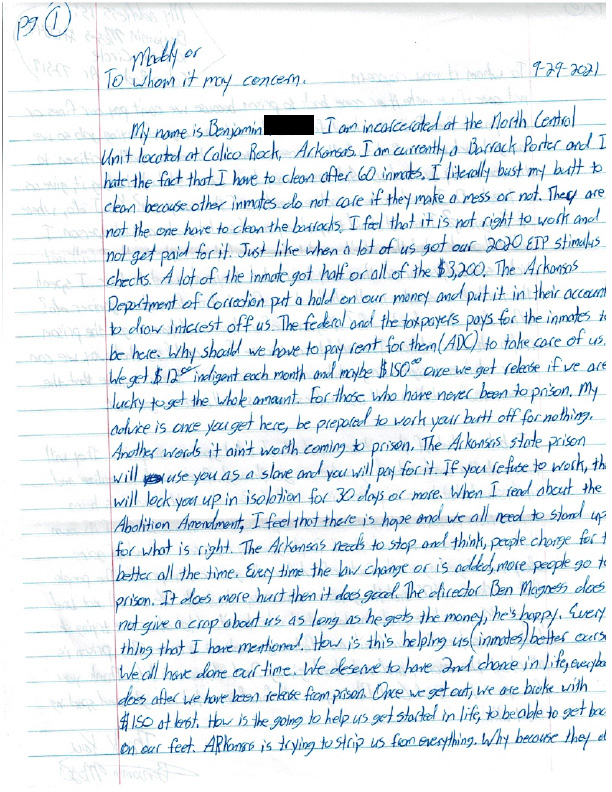 pg 1
Maddy or
To whom it may concern.
9-29-2021
My name is Benjamin I am incarcerated at the North Central
Unit located at Calico Rock, Arkansas. I am currently a Barrack Porter and I
hate the fact that I have to clean after 60 inmates. I literally bust my butt to
clean because other inmates do not care if they make a mess or not. They are
not the one have to clean the barracks. I feel that it is not right to work and
not get paid for it. Just like when a lot of us got our 2020 EIP stimulus
checks. A lot of the inmate got half or all of the $3,200. The Arkansas
Department of Correction put a hold on our money and put it in their account
to draw interest off us. The federal and the taxpayers pays for the inmates t
be here. Why should we have to pay rent for them (ADC) to take care of us.
We get $12.00 indigent each month and maybe $150.00 once we get release if we are
lucky to get the whole amount. For those who have never been to prison. My
advice is once you get here, be prepared to work your butt off for nothing.
Another words it ain't worth coming to prison. The Arkansas state prison
will use you as a slave and you will pay for it. If you refuse to work, th
will lock you up in isolation for 30 days or more. When I read about the
Abolition Amendment, I feel that there is hope and we all need to stand up
for what is right. The Arkansas needs to stop and think, people change for t
better all the time. Every time the law change or is added, more people go t
prison. It does more hurt then it does good. The director Ben Magness does
not give a crap about us as long as he gets the money, he's happy. Every
thing that I have mentioned. How is this helping us (inmates) better ourse
We all have done our time. We deserve to have 2nd chance in life, everybo
does after we have been release from prison. Once we get out, we are broke with
$150 at best. How is the going to help us get started in life, to be able to get bac
on our feet. ARkansas is trying to strip us from everything. Why because they d